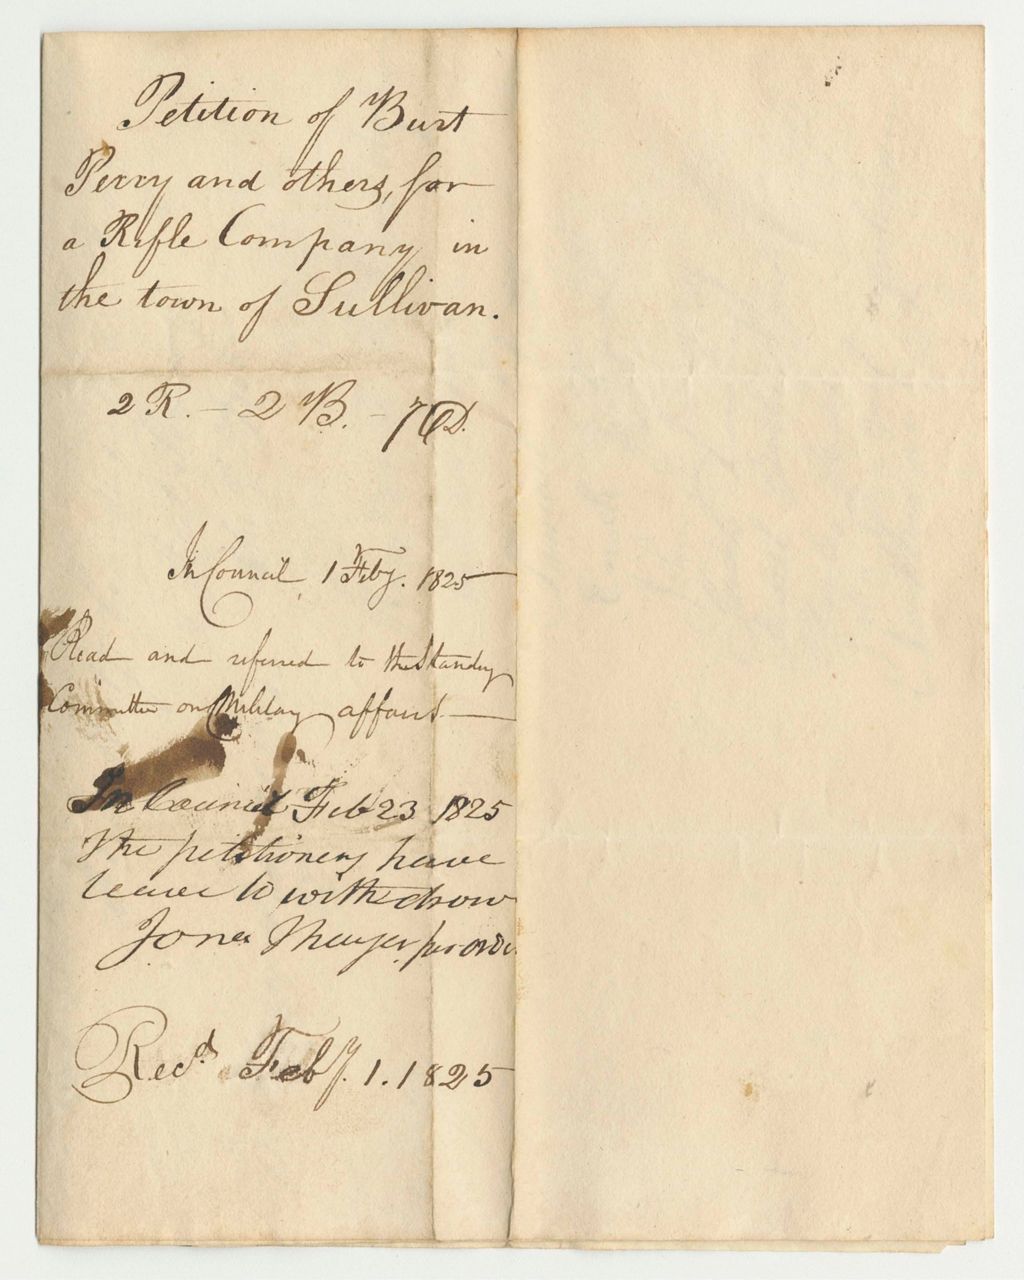 Petition of Burt
Perry and others, for
a Rifle Company in
the town of Sullivan.
2 R. – 2 B. – 7 D.
In Council, 1 Feby. 1825
Read and referred to the Standing
Committee on Military affairs —
In Council Feb 23 1825
The petitioners have
leave to withdraw
Jonas
Recd. Feby. 1. 1825